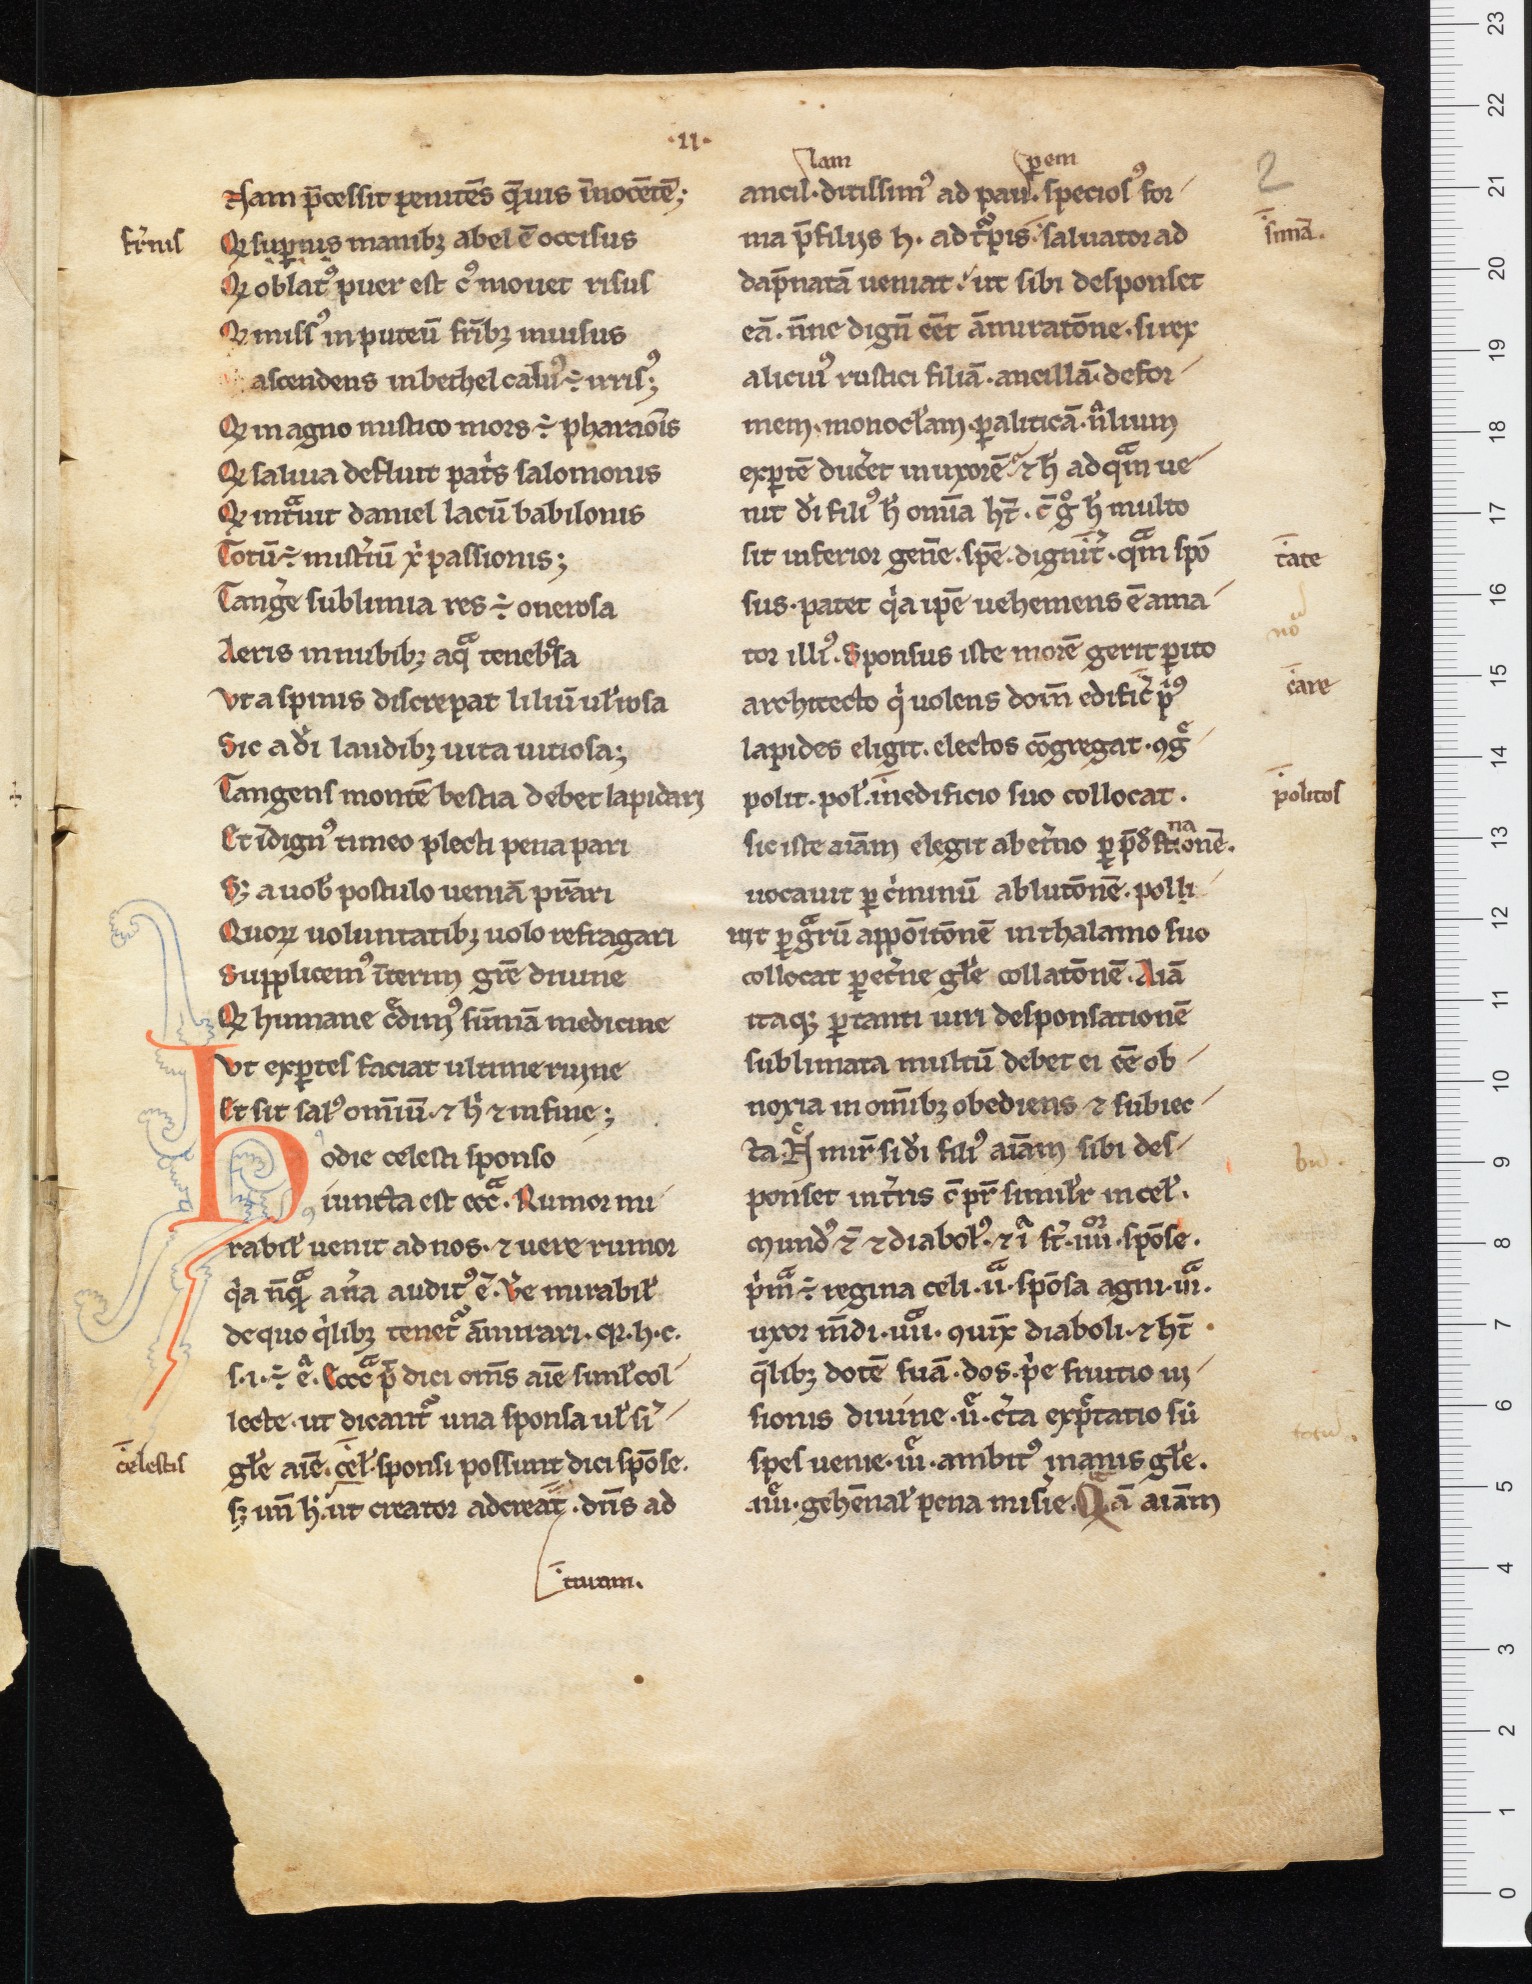 ·II·
2
Nam p̄cessit penitēs q̄muis īnocētē;
fr̄nis
Qȝ suꝑnus manibȝ abel ē occisus
Qȝ oblat᷒ puer est c᷒ mouet risus
Qȝ miss᷒ in puteū fr̄ibȝ inuisus
ascendens in bethel calu᷒ ÷ irris᷒;
Qȝ magno mistico mors ÷ pharaōis
Qȝ saliua defluit pat̾s salomonis
Qȝ intᷓuit daniel lacū babilonis
Totū ÷ mist̾iū xp̄i passionis;
Tang̾e sublimia res ÷ onerosa
Aeris in nubibȝ aqᷓ tenebrosa
Vt a spinis discrepat liliū ul̾ rosa
Sic a d̾i laudibȝ uita uitiosa;
Tangens montē bestia debet lapidarȝ
Et īdign᷒ timeo plecti pena pari
Sȝ a uob̾ postulo ueniā pr̄ari
Quoꝝ uoluntatibȝ uolo refragari
Supplicem᷒ īterim gr̄e diuine
Qȝ humane c̾dim᷒ sūmā medicine
Vt exꝑtes faciat ultime ruine
Et sit sal᷒ omīuꝫ ⁊ h̾ ⁊ in fine;
Hodie celesti sponso
iuncta est eccᷓ. Rumor mi
rabil̾ uenit ad nos. ⁊ uere rumor
q̾a nq̄ᷓ an̾a audit᷒ ē. V̾e mirabil̾
de quo q̾libȝ tenet᷑ āmirari. qȝ. h. c.
s. i. ÷ ē. Eccᷓ p̄ dici om̄s aīe simĺ col
lecte. ut dicant᷑ una sponsa ul̾ si
celestis
gĺe aīe. cel̾. sponsi possunt dici spōse.
sȝ nn̄ h̾. ut creator ad creāt. dn̄s ad
turam.
lam
ꝑem
ancil. ditissim᷒ ad pau. specios᷒ for
simā.
ma p̄ filiis h. ad t᷑pis. saluator ad
dap̄natā ueniat. ut sibi desponset
eā. nn̄e dignū eēt āmiratōne. si rex
alicui᷒ rustici filiā. ancillā. defor
mem. monocl̾am. ꝑaliticā. nlium
exꝑtē duc̾et in uxorē. ⁊ h̾ ad qᷓm ue
nit d̾i fili᷒ h̾ omīa ht̄. c̄ g̊ h̾ multo
tate
sit inferior gen̾e. spē. dignit̾. qᷓm spō
sus. patet q̾a ip̄e uehemens ē ama
no
tor illi᷒. Sponsus iste morē gerit ꝑito
care
architecto q̾ uolens dom̄ edific̾ p᷒
lapides eligit. electos cōgregat. ꝯgᷓ
politos
polit. pol̾. in edificio suo collocat.
na
sic iste aīam elegit ab et̾no ꝑ p̄d̾stionē.
uocauit ꝑ c̾minū ablutōnē. polli
uit ꝑ gᷓrū appōitōnē in thalamo suo
collocat ꝑ et̾ne gĺe collatōnē. Aīā
itaqȝ ꝑ tanti uiri desponsationē
sublimata multū debet ei eē ob
noxia in omībȝ obediens ⁊ subiec
ta. mir̄ si d̾i fili᷒ aīam sibi des
bn̄.
ponset in t̾nis c̄ pr̄ simil̾r in cel̾.
mund᷒ ē ⁊ diabol᷒. ⁊ i st̾. iiii. spōse.
p̾mᷓ ÷ regina celi. iiᷓ. spōsa agni. iiiᷓ.
uxor mūdi. iiiiᷓ. ꝯiūx diaboli. ⁊ ht̄
q̄libȝ dotē suā. dos. p̾e fruitio ui
sionis diuine. iiᷓ. c̾ta expᷓtatio siū
spes uenie. iiiᷓ. ambit᷒ inanis gĺe.
iiiiᷓ. gehēnal̾ pena mis̾ie. Qā aīam